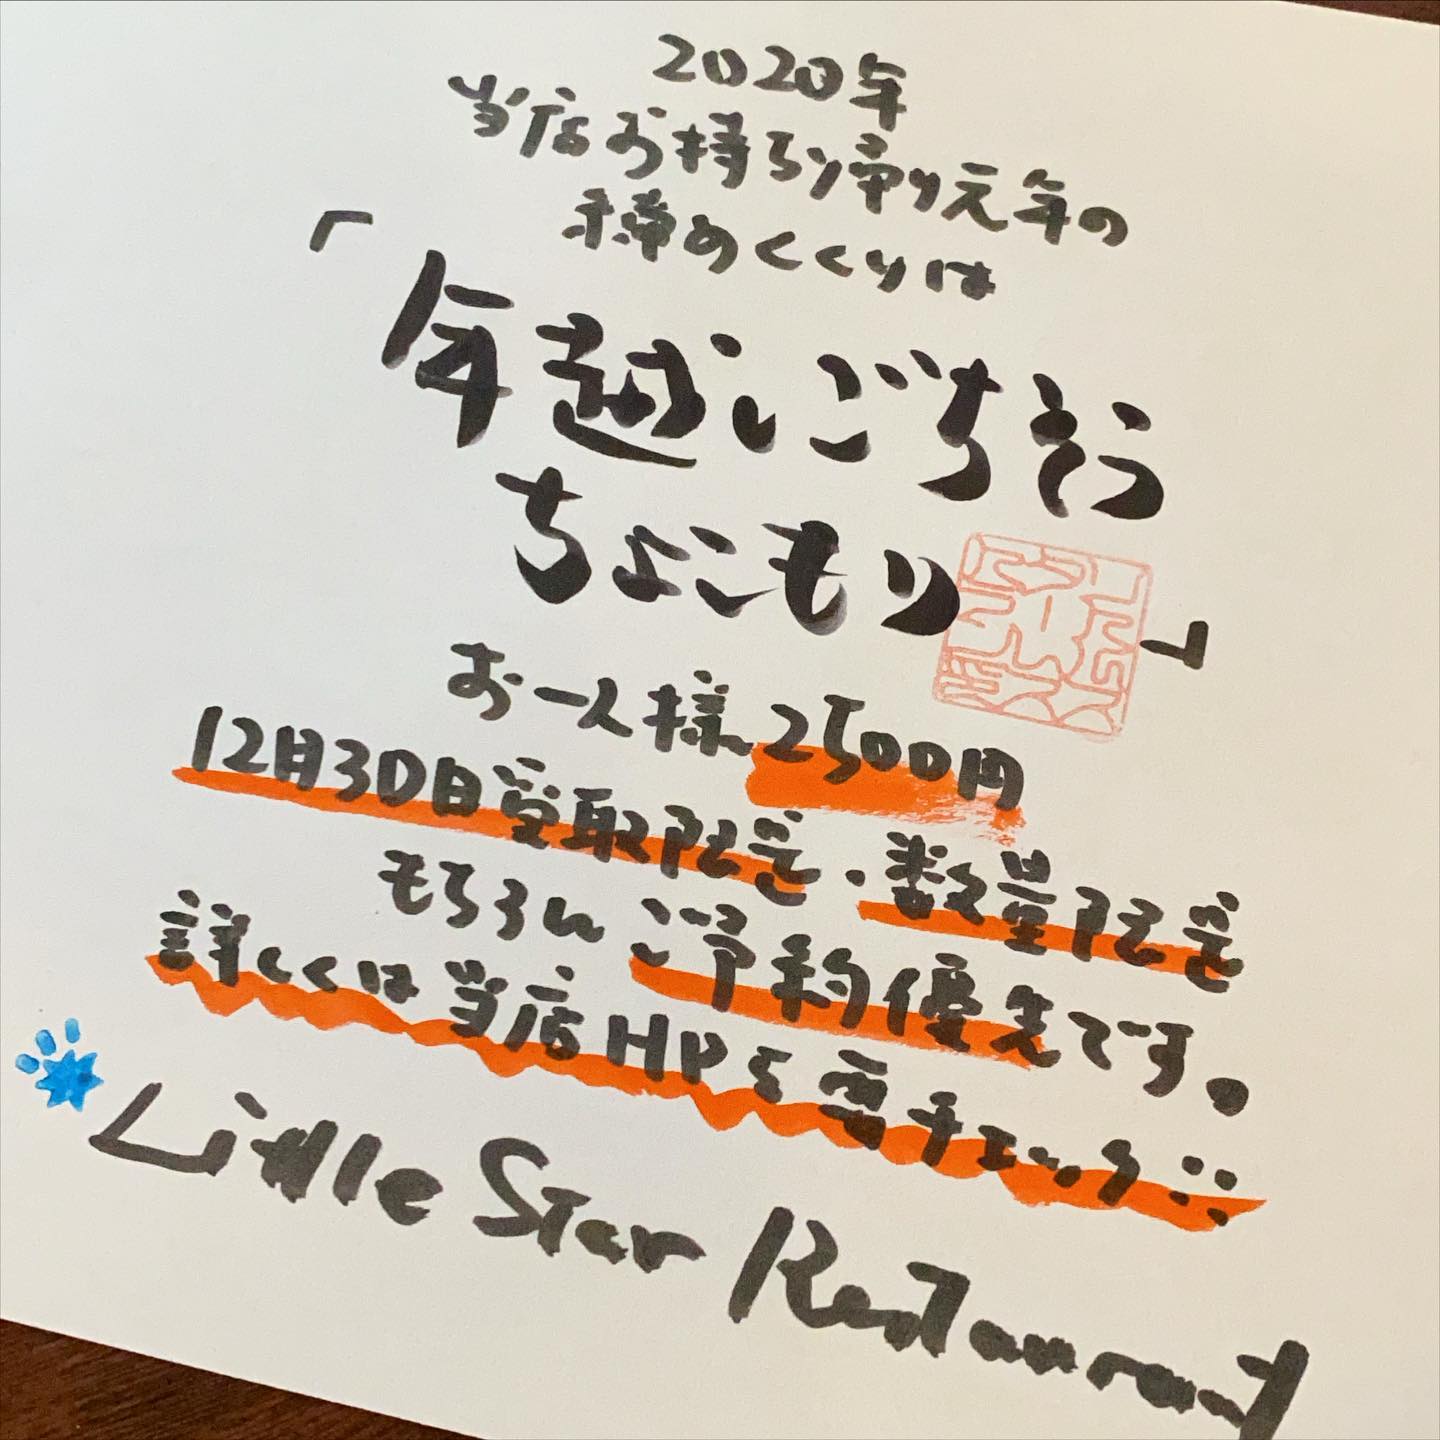 2020年
当店お持ち帰り元年の
締めくくりは
「年越しごちそう
ちょこもり」
お一人様2500円
12月30日受取限定・数量限定
もちろんご予約優先です。
詳しくは当店HPを要チェック!!
Little Star Restaurant